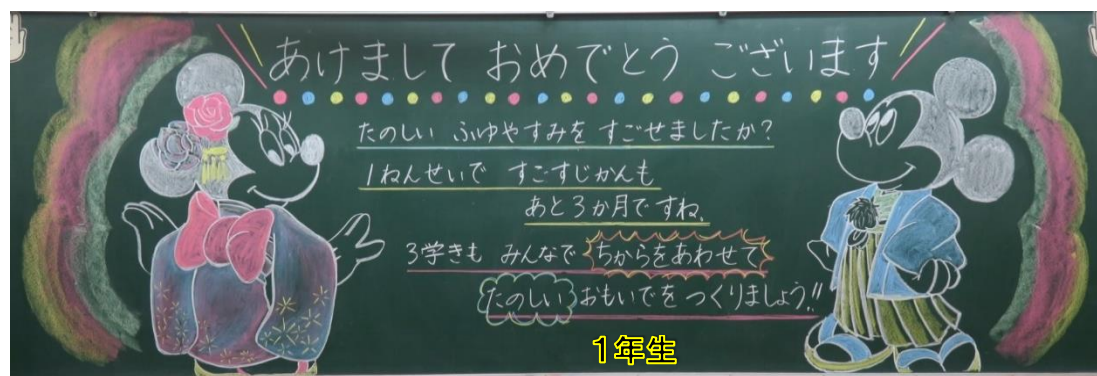 あけまして おめでとう ございます
たのしい ふゆやすみを すごせましたか？
1ねんせいで すごすじかんも
あと3か月ですね。
3学きも みんなで ちからをあわせて
たのしい おもいでを つくりましょう!!
1年生